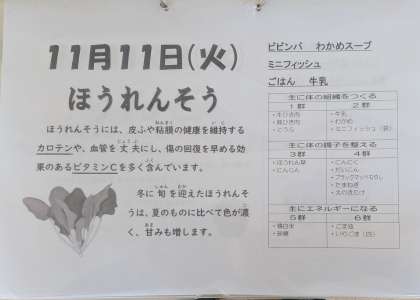 11月11日(火)
ほうれんそう
ほうれんそうには、皮ふや粘膜の健康を維持する
カロテンや、血管を丈夫にし、傷の回復を早める効
果のあるビタミンCを多く含んでいます。
冬に旬を迎えたほうれんそ
うは、夏のものに比べて色が濃
く、甘みも増します。
ビビンバ わかめスープ
ミニフィッシュ
ごはん 牛乳
主に体の組織をつくる
1群 2群
・牛乳
・わかめ
・とうふ ・ミニフィッシュ(袋)
主に体の調子を整える
3群 4群
・ほうれん草 ・にんにく
・にんじん ・だいこん
・たまねぎ
主にエネルギーになる
5群 6群
・精白米 ・ごま油
・砂糖 ・いりごま(白)